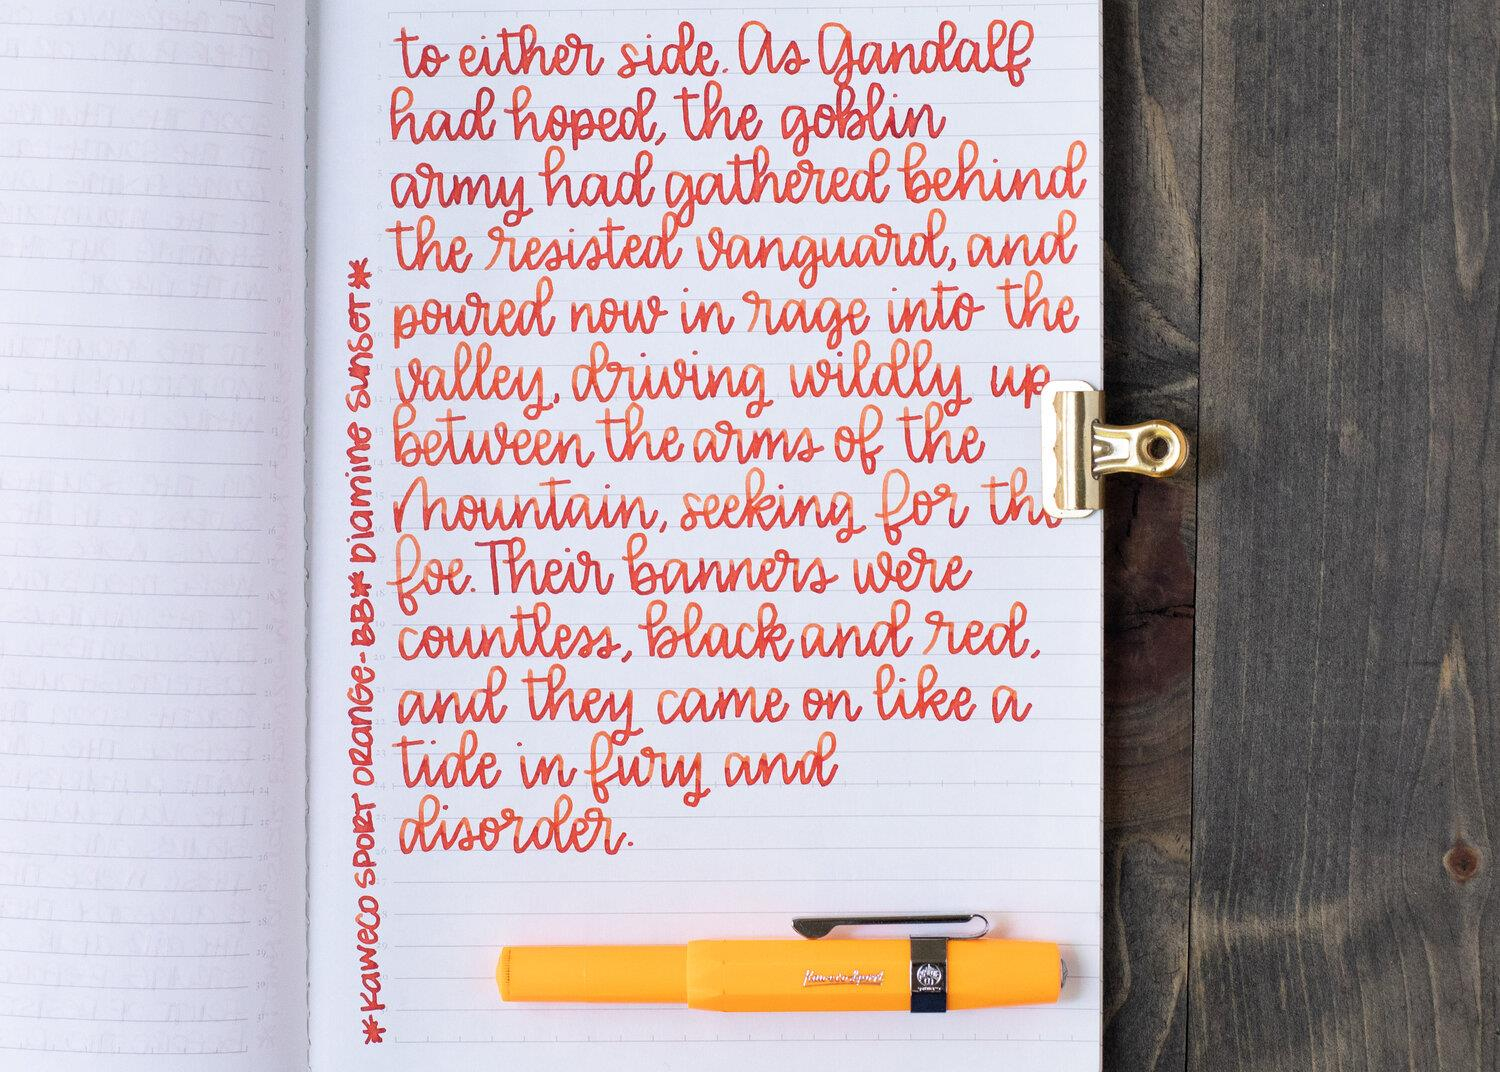 to either side. As Gandalf
had hoped, the goblin
army had gathered behind
the resisted vanguard, and
poured now in rage into the
valley, driving wildly up
between the arms of the
Mountain, seeking for the
foe. Their banners were
countless, black and red,
and they came on like a
tide in fury and
disorder.
*KAWECO SPORT ORANGE-BB* DIAMINE SUNSET*
Kaweco Sport